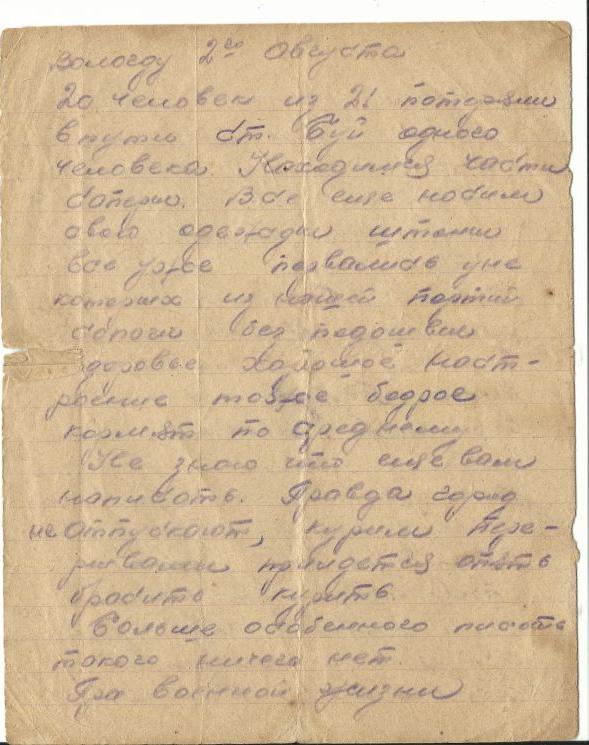 Вологду 2го Августа
20 человек из 21 потеряли
в пути ст. Буй одного
человека. Находимся части
сапёрн. Все еще носим
свою одежду штаны
все уже порвались у не
которых из нашей партии
сапоги без подошвы
здоровье хорошое наст-
роение тоже бодрое
кормят по среднему
Не знаю что еще вам
написать. Правда город
не отпускают, курим пере-
рывами придется опять
бросить курить.
Больше особенного писать
такого ничего нет.
Про военной жизни